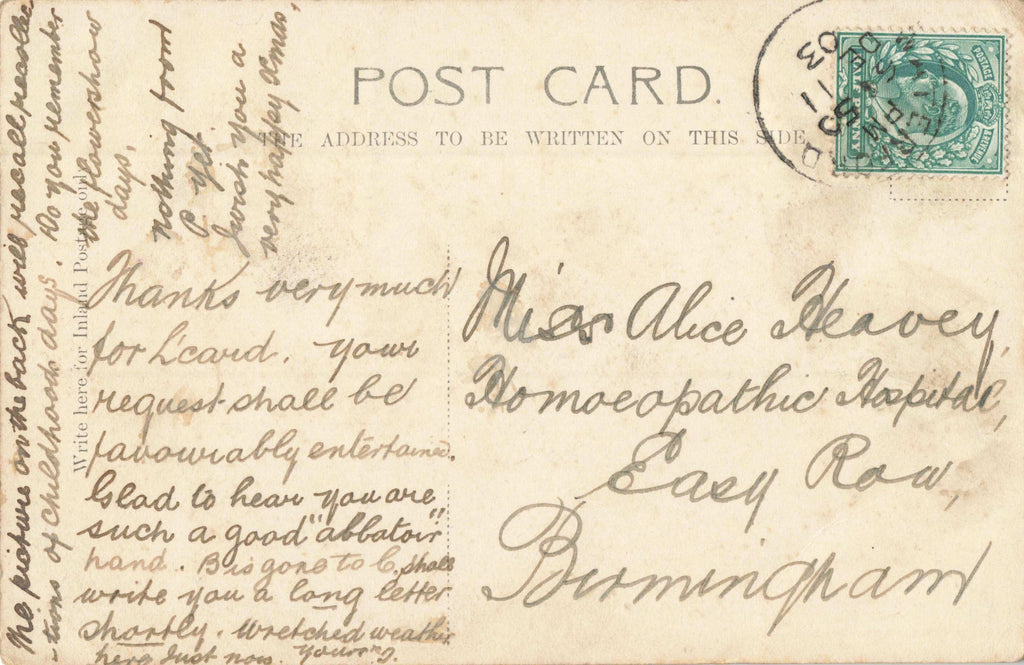 POST CARD.
THE ADDRESS TO BE WRITTEN ON THIS SIDE
Write here for Inland Postage only
Miss Alice Heavey,
Homoeopathic Hospital,
Easy Row,
Birmingham
Thanks very much
for L'card. Your
request shall be
favourably entertained.
Glad to hear you are
such a good "abbatoir"
hand. B is gone to C, shall
write you a long letter
shortly. Wretched weather
here just now. Yours
The picture on the back will recall recollec
-tions of childhoods days. Do you remember
the flowershow
days.
Nothing from
P yet
I wish you a
very happy Xmas.
POSTAGE
REVENUE